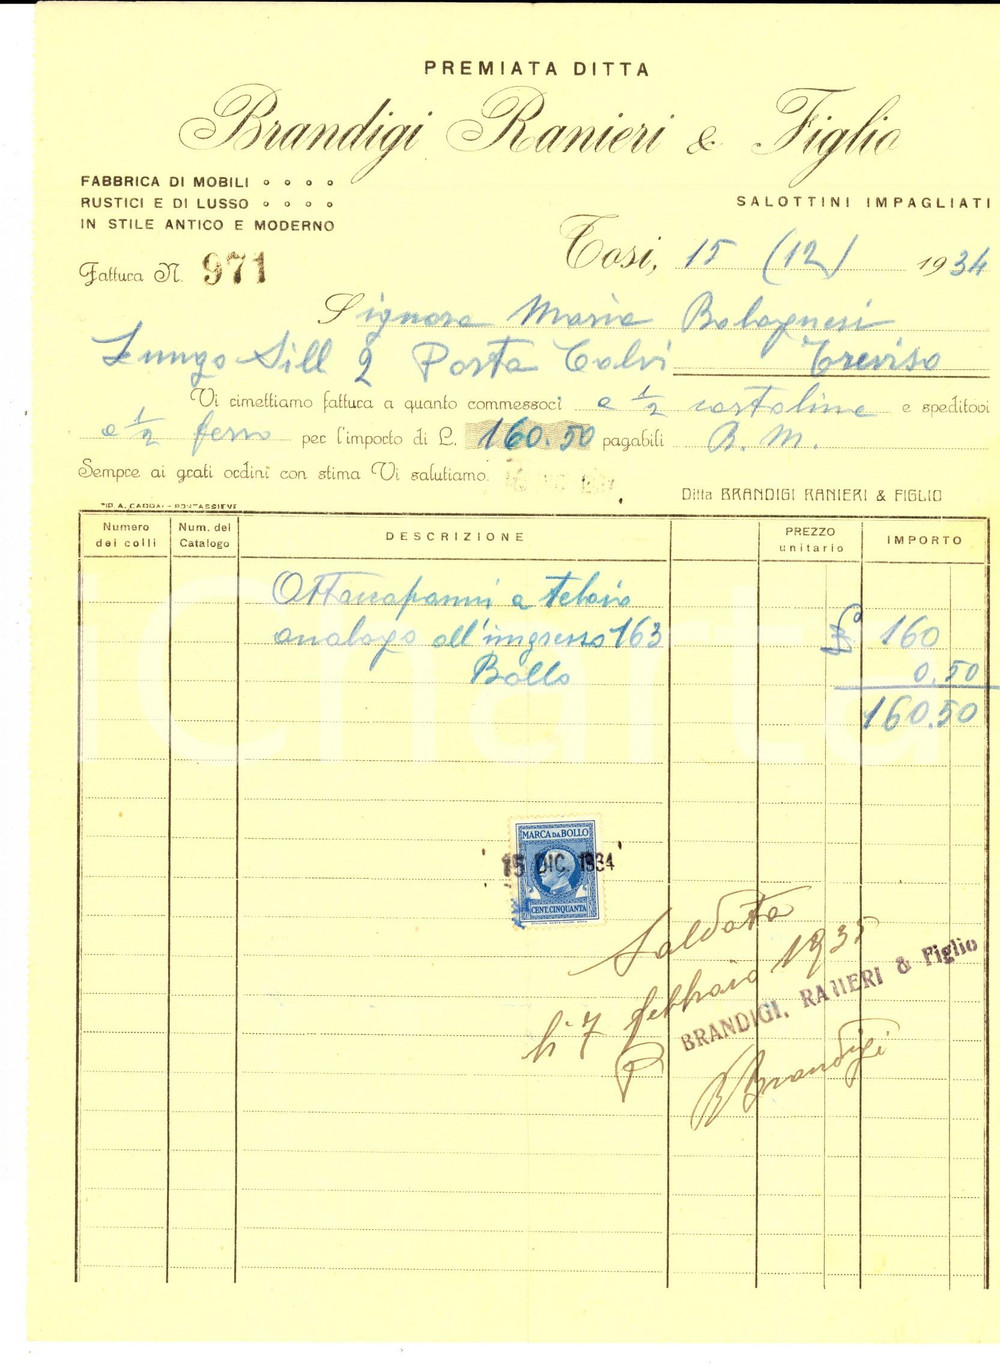 PREMIATA DITTA
Brandigi Ranieri & Figlio
FABBRICA DI MOBILI
RUSTICI E DI LUSSO
IN STILE ANTICO E MODERNO
SALOTTINI IMPAGLIATI
Tosi, 15 (12) 1934
Fattura N. 971
Signora Maria Bolognesi
Lungo Sill 2 Porta Calvi Treviso
Vi rimettiamo fattura a quanto commessoci a ½ cartolina e speditovi
a ½ ferro per l'importo di L. 160.50 pagabili R. M.
Sempre ai grati ordini con stima Vi salutiamo.
Ditta BRANDIGI RANIERI & FIGLIO
TIP. A. - PONTASSIEVE
Numero dei colli
Num. del Catalogo
DESCRIZIONE
PREZZO unitario
IMPORTO
Attaccapanni a telaio
analogo all'ingresso 163 160
Bollo 0.50
160.50
MARCA DA BOLLO
15 DIC. 1934
CENT. CINQUANTA
Saldata
li 7 febbraio 1935
P BRANDIGI, RANIERI & Figlio
R Brandigi
iCharta